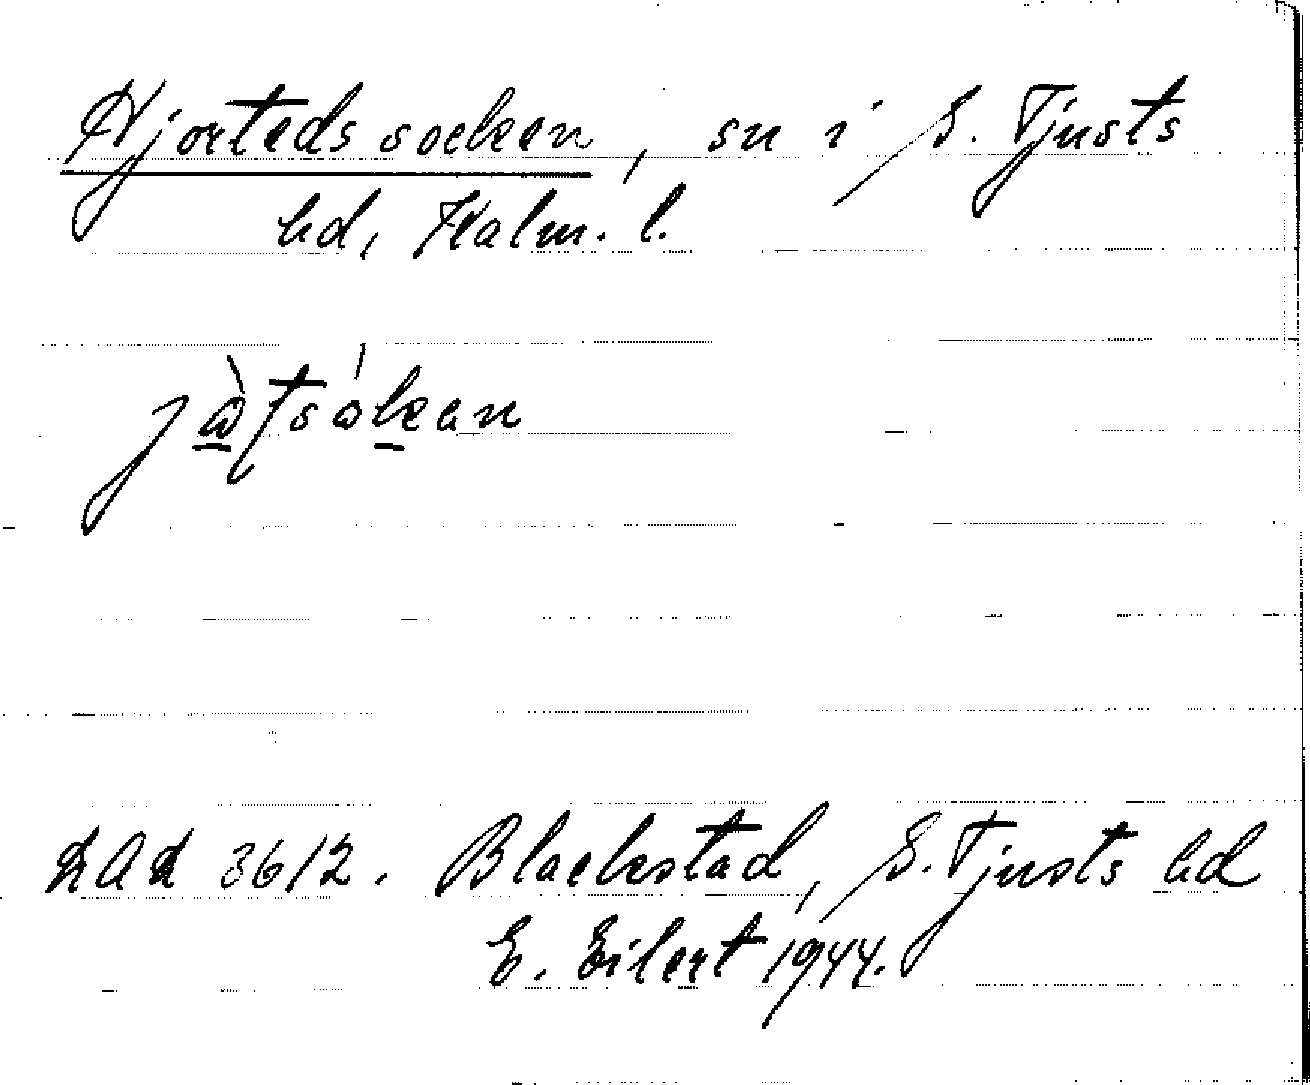 Hjorteds socken, sn i S. Tjusts
hd, Kalm. l.
LAL 3612. Blackstad, S. Tjusts hd
E. Eilert 1944.